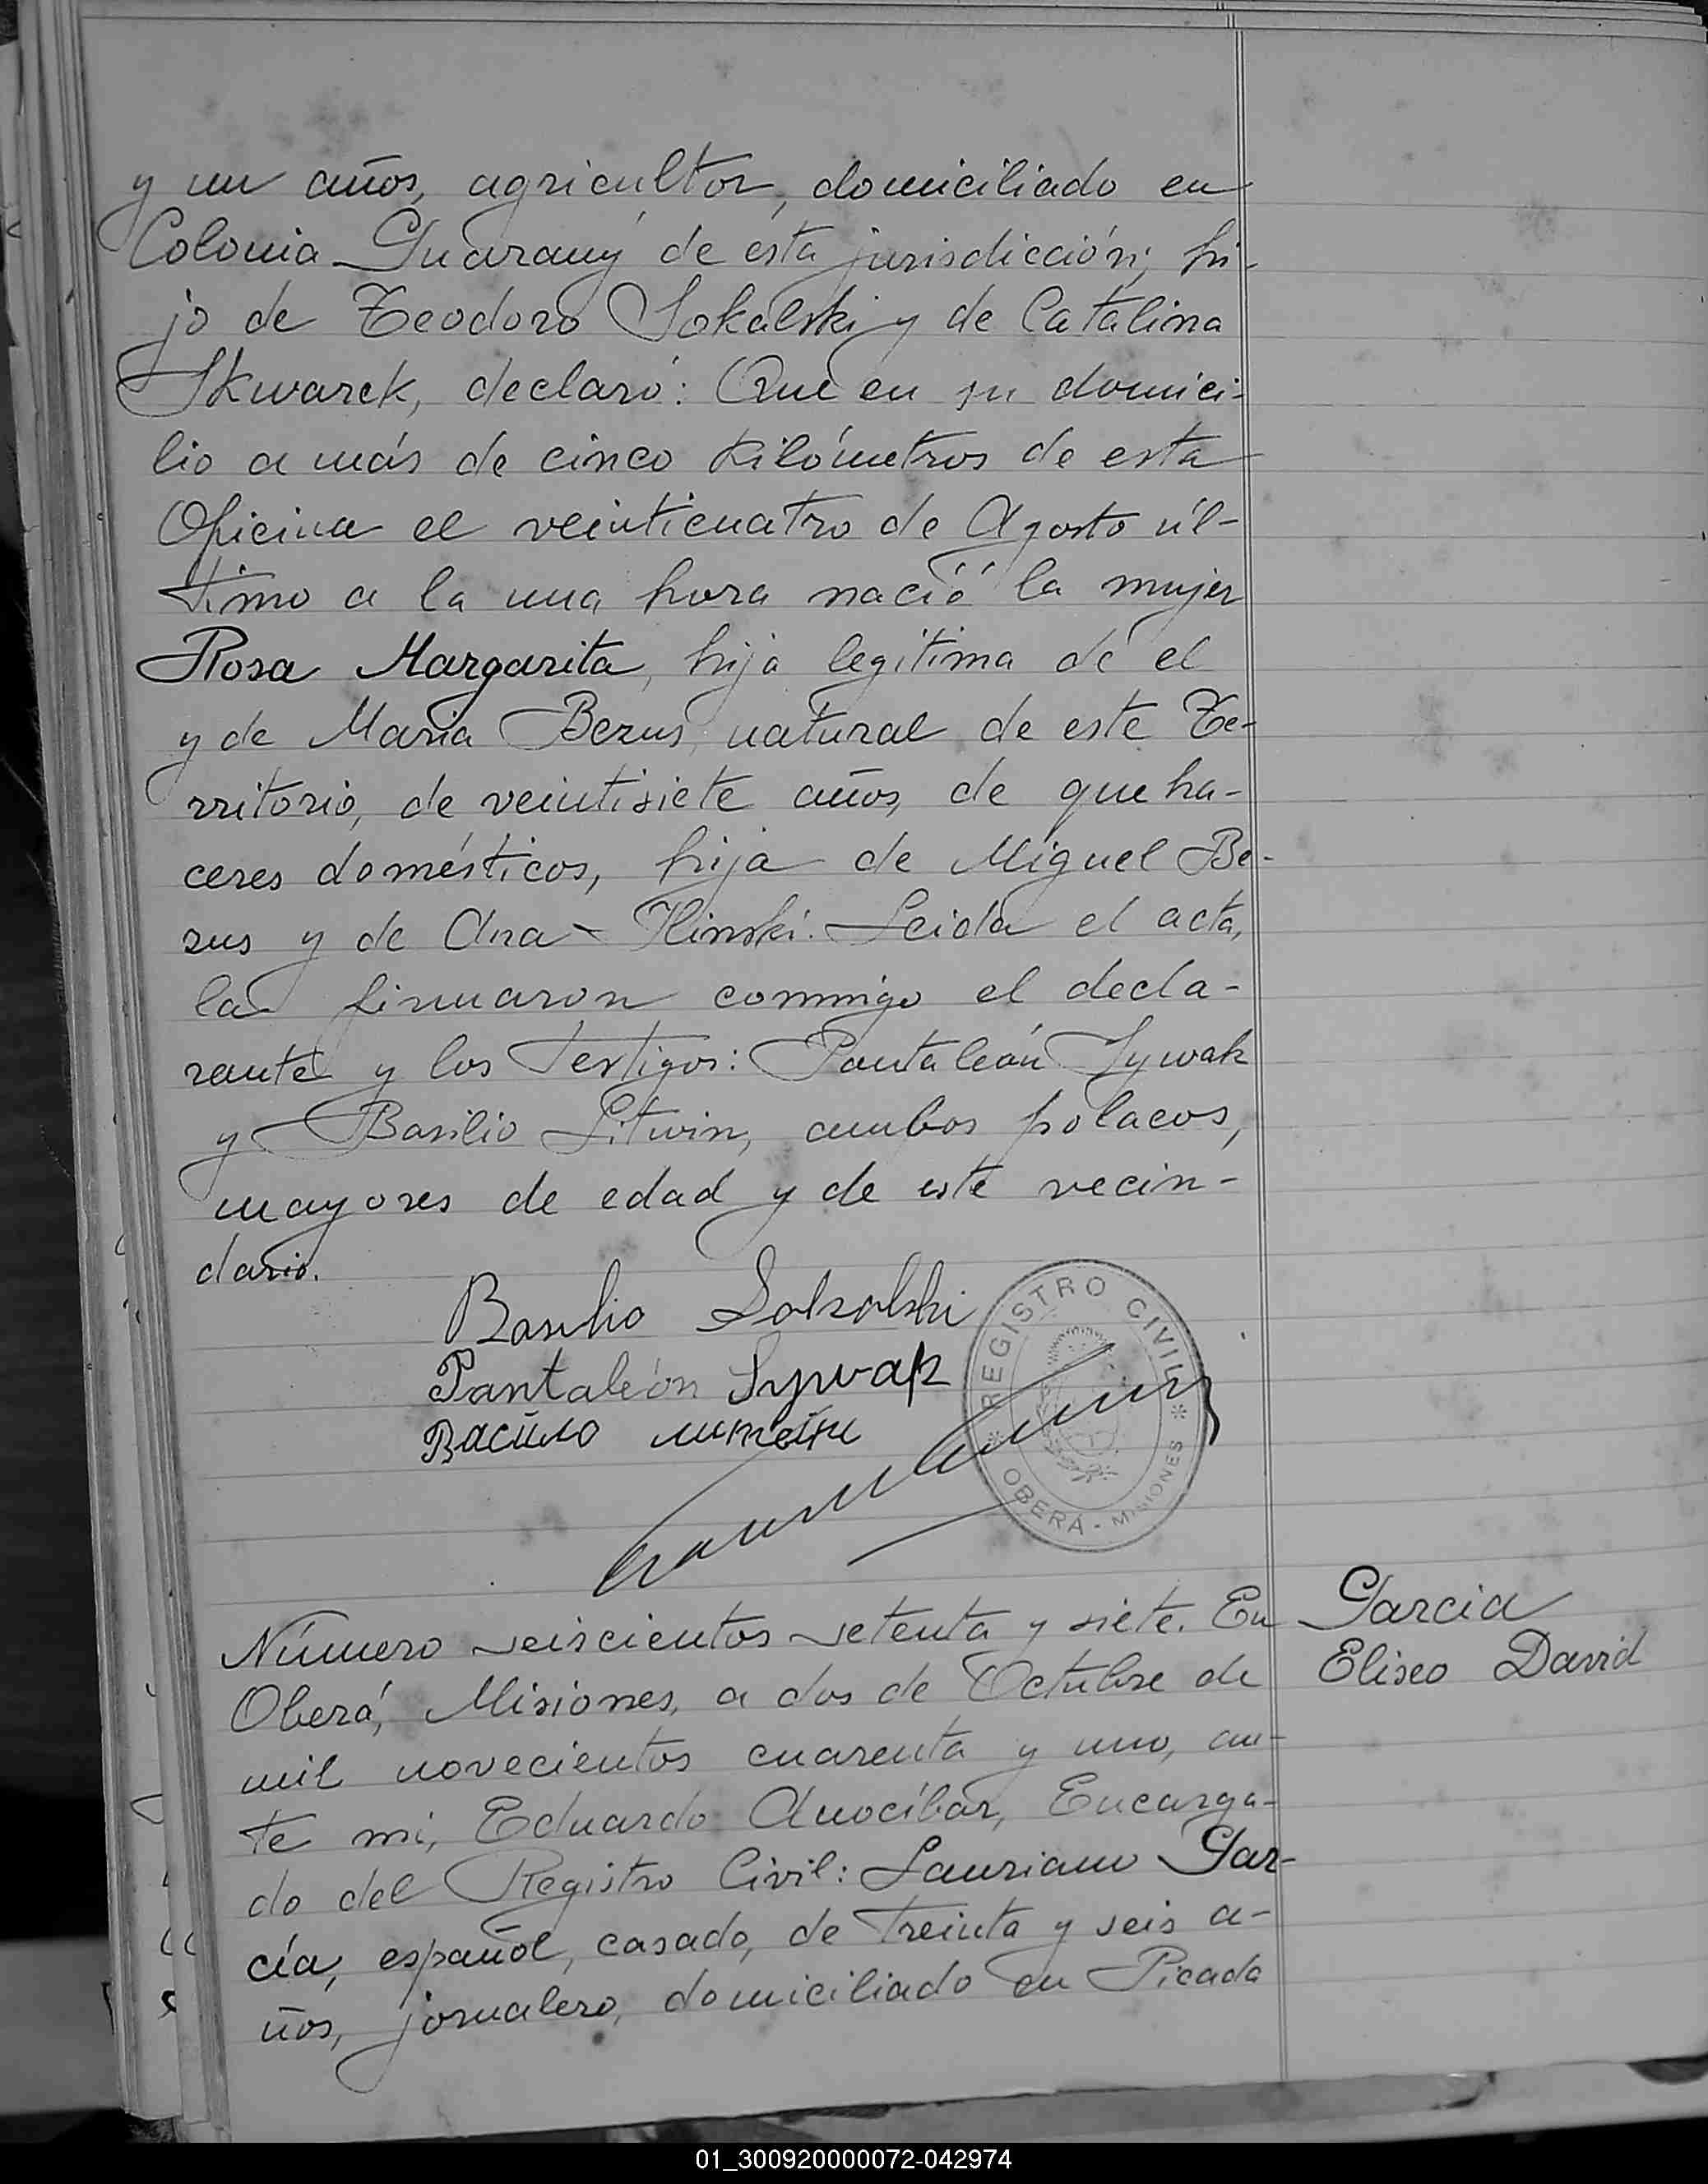 y un años, agricultor, domiciliado en
Colonia Guarany de esta jurisdicción; hi-
jo de Teodoro Sokalski y de Catalina
Skwarek, declaró: Que en su domici-
lio a más de cinco kilómetros de esta
Oficina el veinticuatro de Agosto úl-
timo a la una hora nació la mujer
Rosa Margarita, hija legitima de el
y de Maria Bezus, natural de este Te-
rritorio, de veintisiete años, de queha-
ceres domésticos, hija de Miguel Be-
zus y de Ana Ilinski. Leida el acta,
la firmaron conmigo el decla-
rante y los testigos: Pantaleón Sywak
y Basilio Litwin, ambos polacos,
mayores de edad y de este vecin-
dario.
Basilio Sokalski
Pantaleón Sywak
REGISTRO CIVIL
OBERÁ - MISIONES
Número seiscientos setenta y siete. En
Oberá, Misiones, a dos de Octubre de
mil novecientos cuarenta y uno, an-
te mi, Eduardo Anocíbar, Encarga-
do del Registro Civil: Lauriano Gar-
cía, español, casado, de treinta y seis a-
ños, jornalero, domiciliado en Picada
Garcia
Eliseo David
01_300920000072-042974